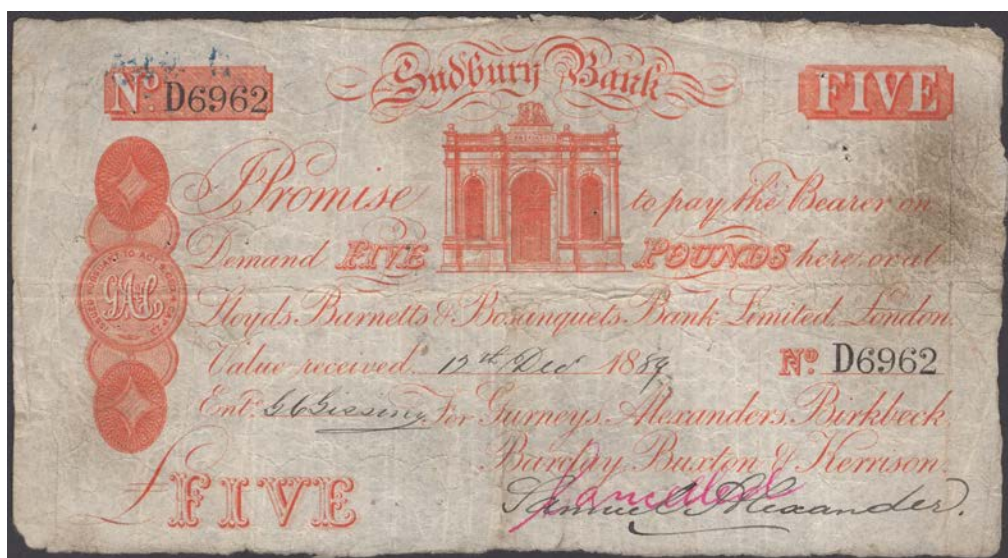 Sudbury Bank
No. D6962
FIVE
I Promise to pay the Bearer on
Demand FIVE POUNDS here, or at
Lloyds Barnetts & Bosanquets Bank Limited, London.
Value received 12th Dec 1889
No. D6962
Entd. G C Gissing For Gurneys, Alexanders, Birkbeck,
Barclay, Buxton & Kerrison.
£ FIVE
Cancelled
Samuel Alexander.
GAC